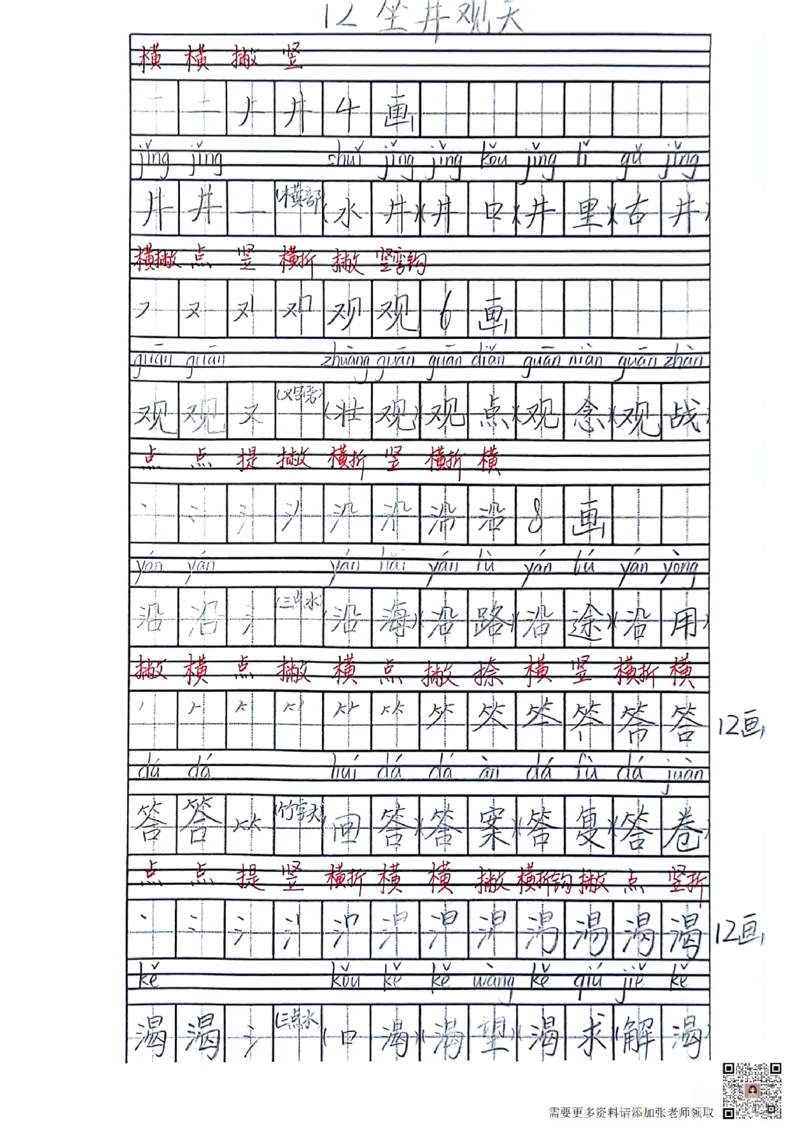 12 坐井观天
横 横 撇 竖
一 二 キ 井 4 画
jǐng jǐng shuǐ jǐng jǐng kǒu jǐng lǐ gǔ jǐng
井 井 一 (横部) (水 井)(井 口)(井 里)(古 井)
横撇 点 竖 横折 撇 竖弯钩
フ 又 观 观 6 画
guān guān zhuàng guān guān diǎn guān niàn guān zhàn
观 观 又 (又字旁) (壮 观)(观 点)(观 念)(观 战)
点 点 提 撇 横折 竖 横折 横
丶 冫 氵 沿 沿 8 画
yán yán yán hǎi yán lù yán tú yán yòng
沿 沿 氵 (三点水) (沿 海)(沿 路)(沿 途)(沿 用)
撇 横 点 撇 横 点 撇 捺 横 竖 横折 横
丿 𠂉 答 答 12画
dá dá huí dá dá àn dá fù dá juàn
答 答 ⺮ (竹字头) 回 答)(答 案)(答 复)(答 卷)
点 点 提 竖 横折 横 横 撇 横折钩 撇 点 竖折
丶 冫 氵 渴 渴 12画
kě kǒu kě kě wàng kě qiú jiě kě
渴 渴 氵 (三点水 (口 渴)(渴 望)(渴 求)(解 渴)
需要更多资料请添加张老师领取